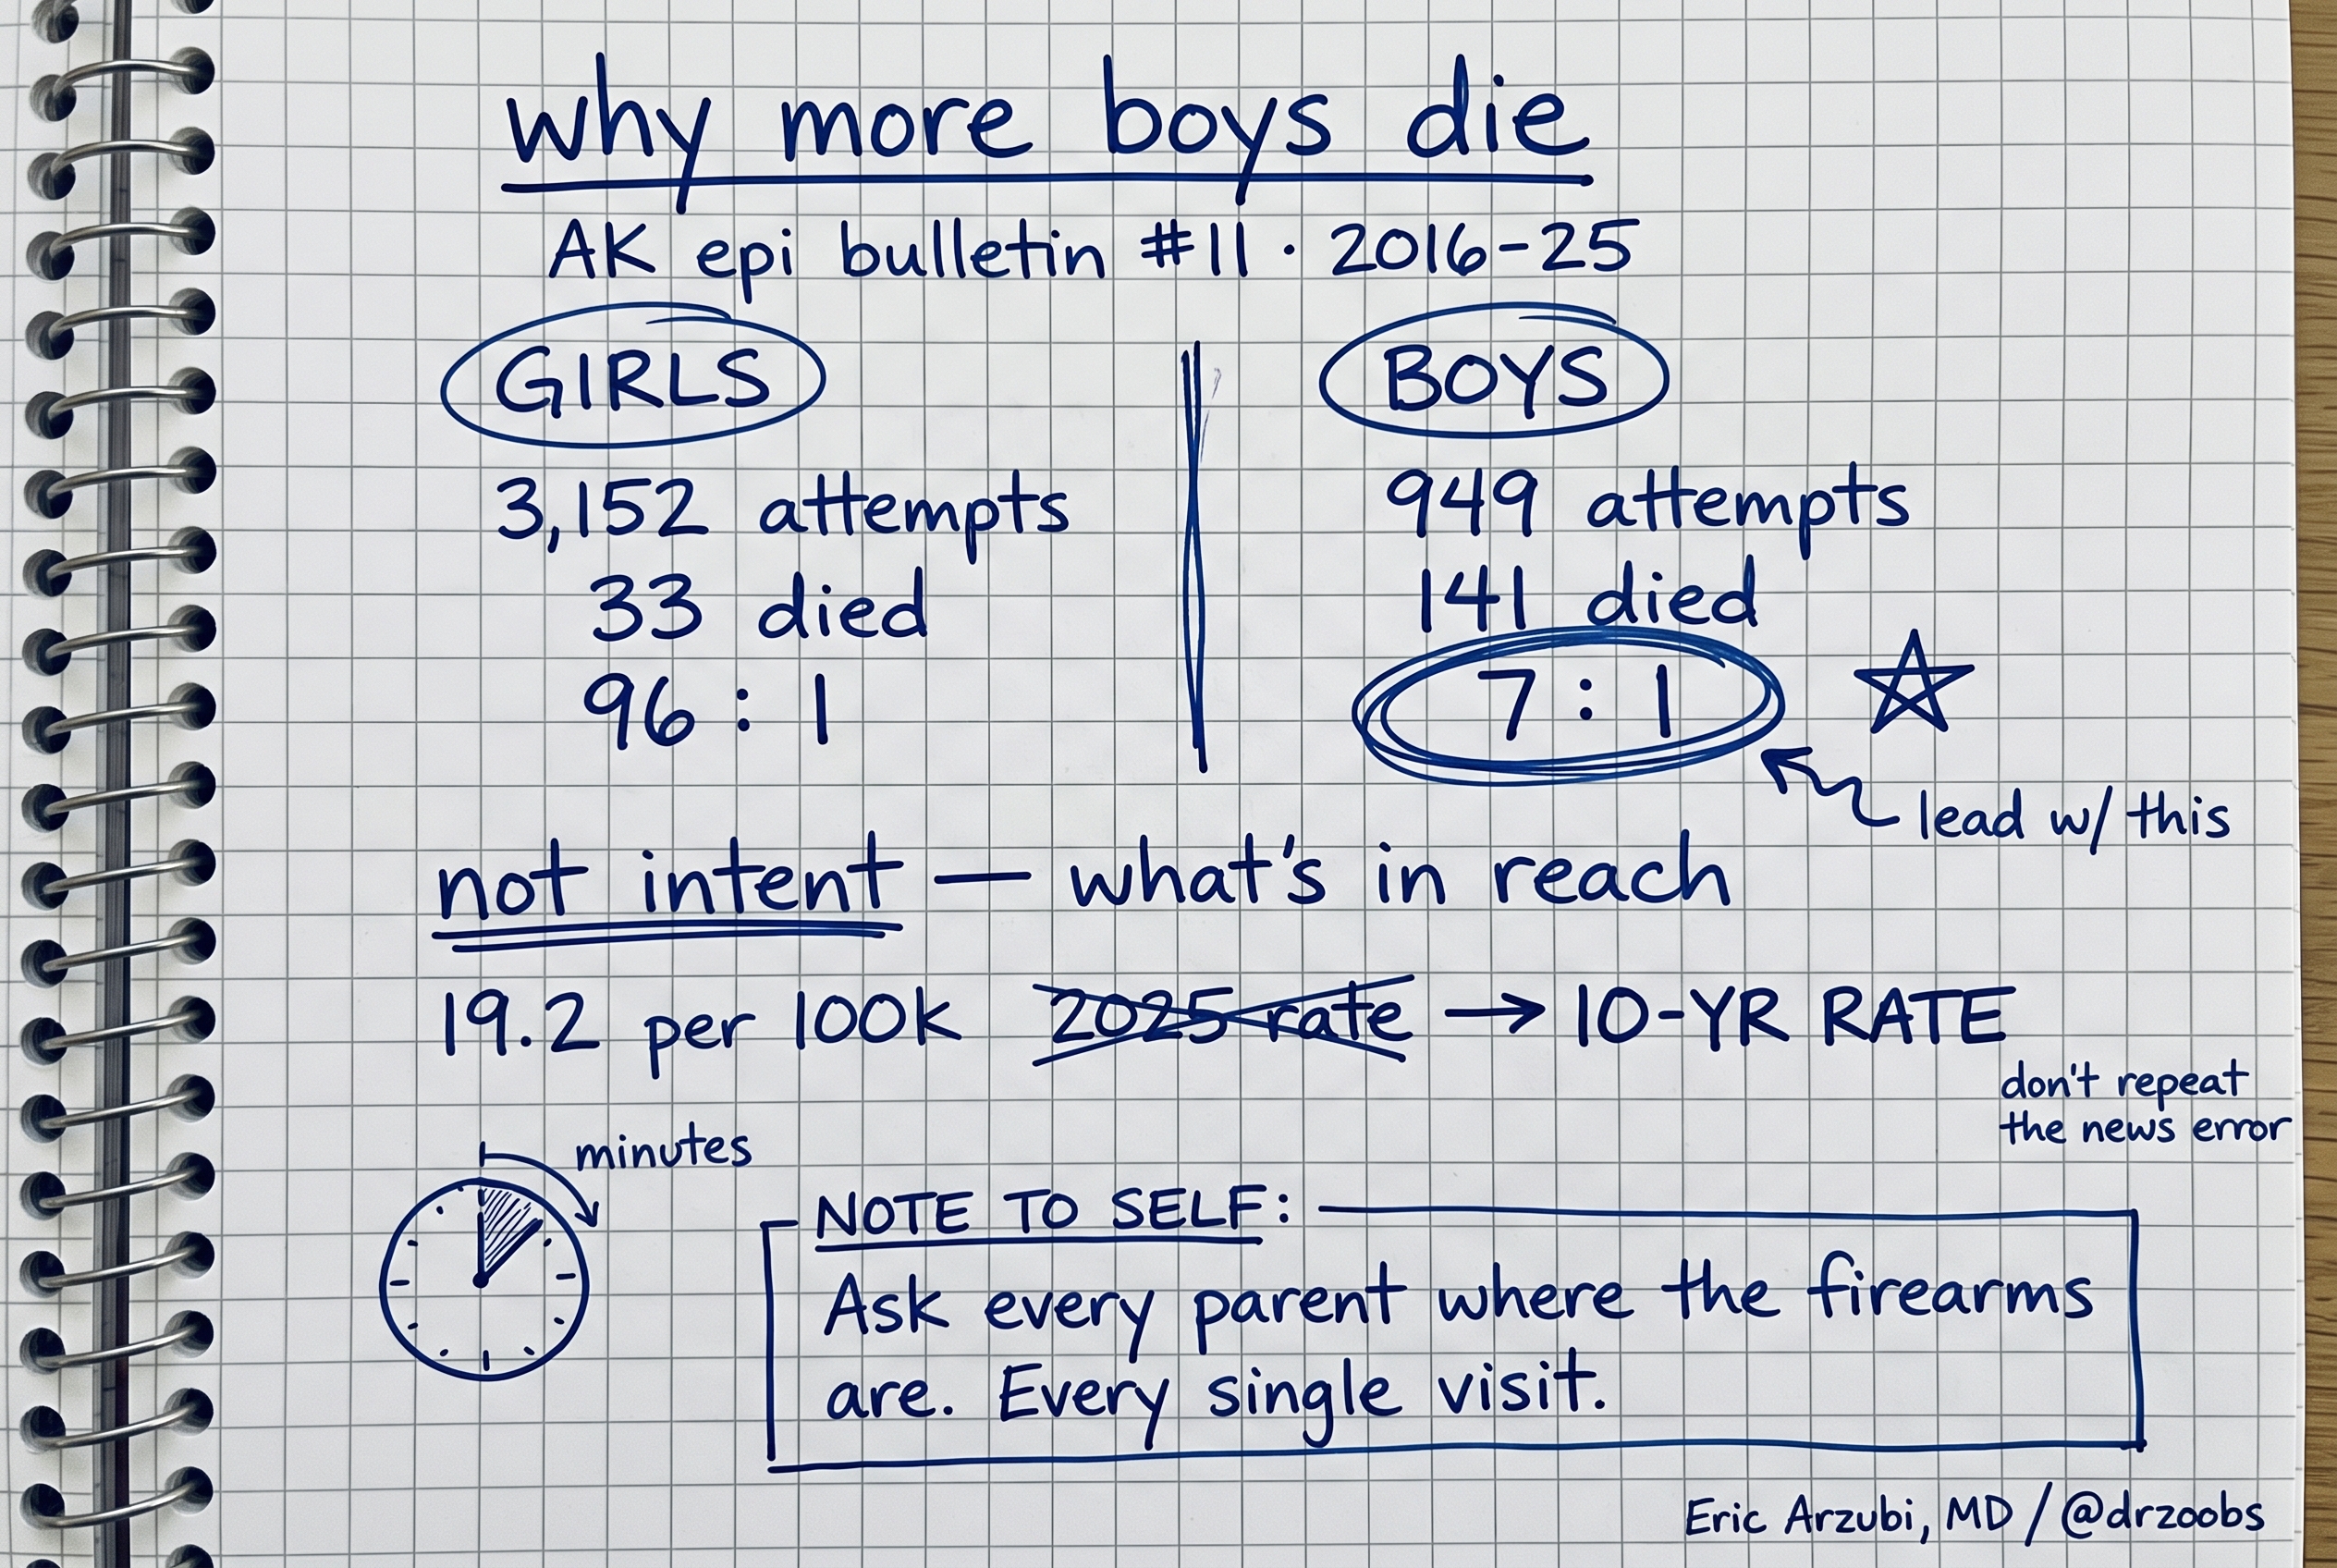 why more boys die
AK epi bulletin #11 · 2016-25
GIRLS
3,152 attempts
33 died
96 : 1
BOYS
949 attempts
141 died
7 : 1
lead w/ this
not intent — what's in reach
19.2 per 100k 2025 rate → 10-YR RATE
don't repeat
the news error
minutes
NOTE TO SELF:
Ask every parent where the firearms
are. Every single visit.
Eric Arzubi, MD / @drzoobs